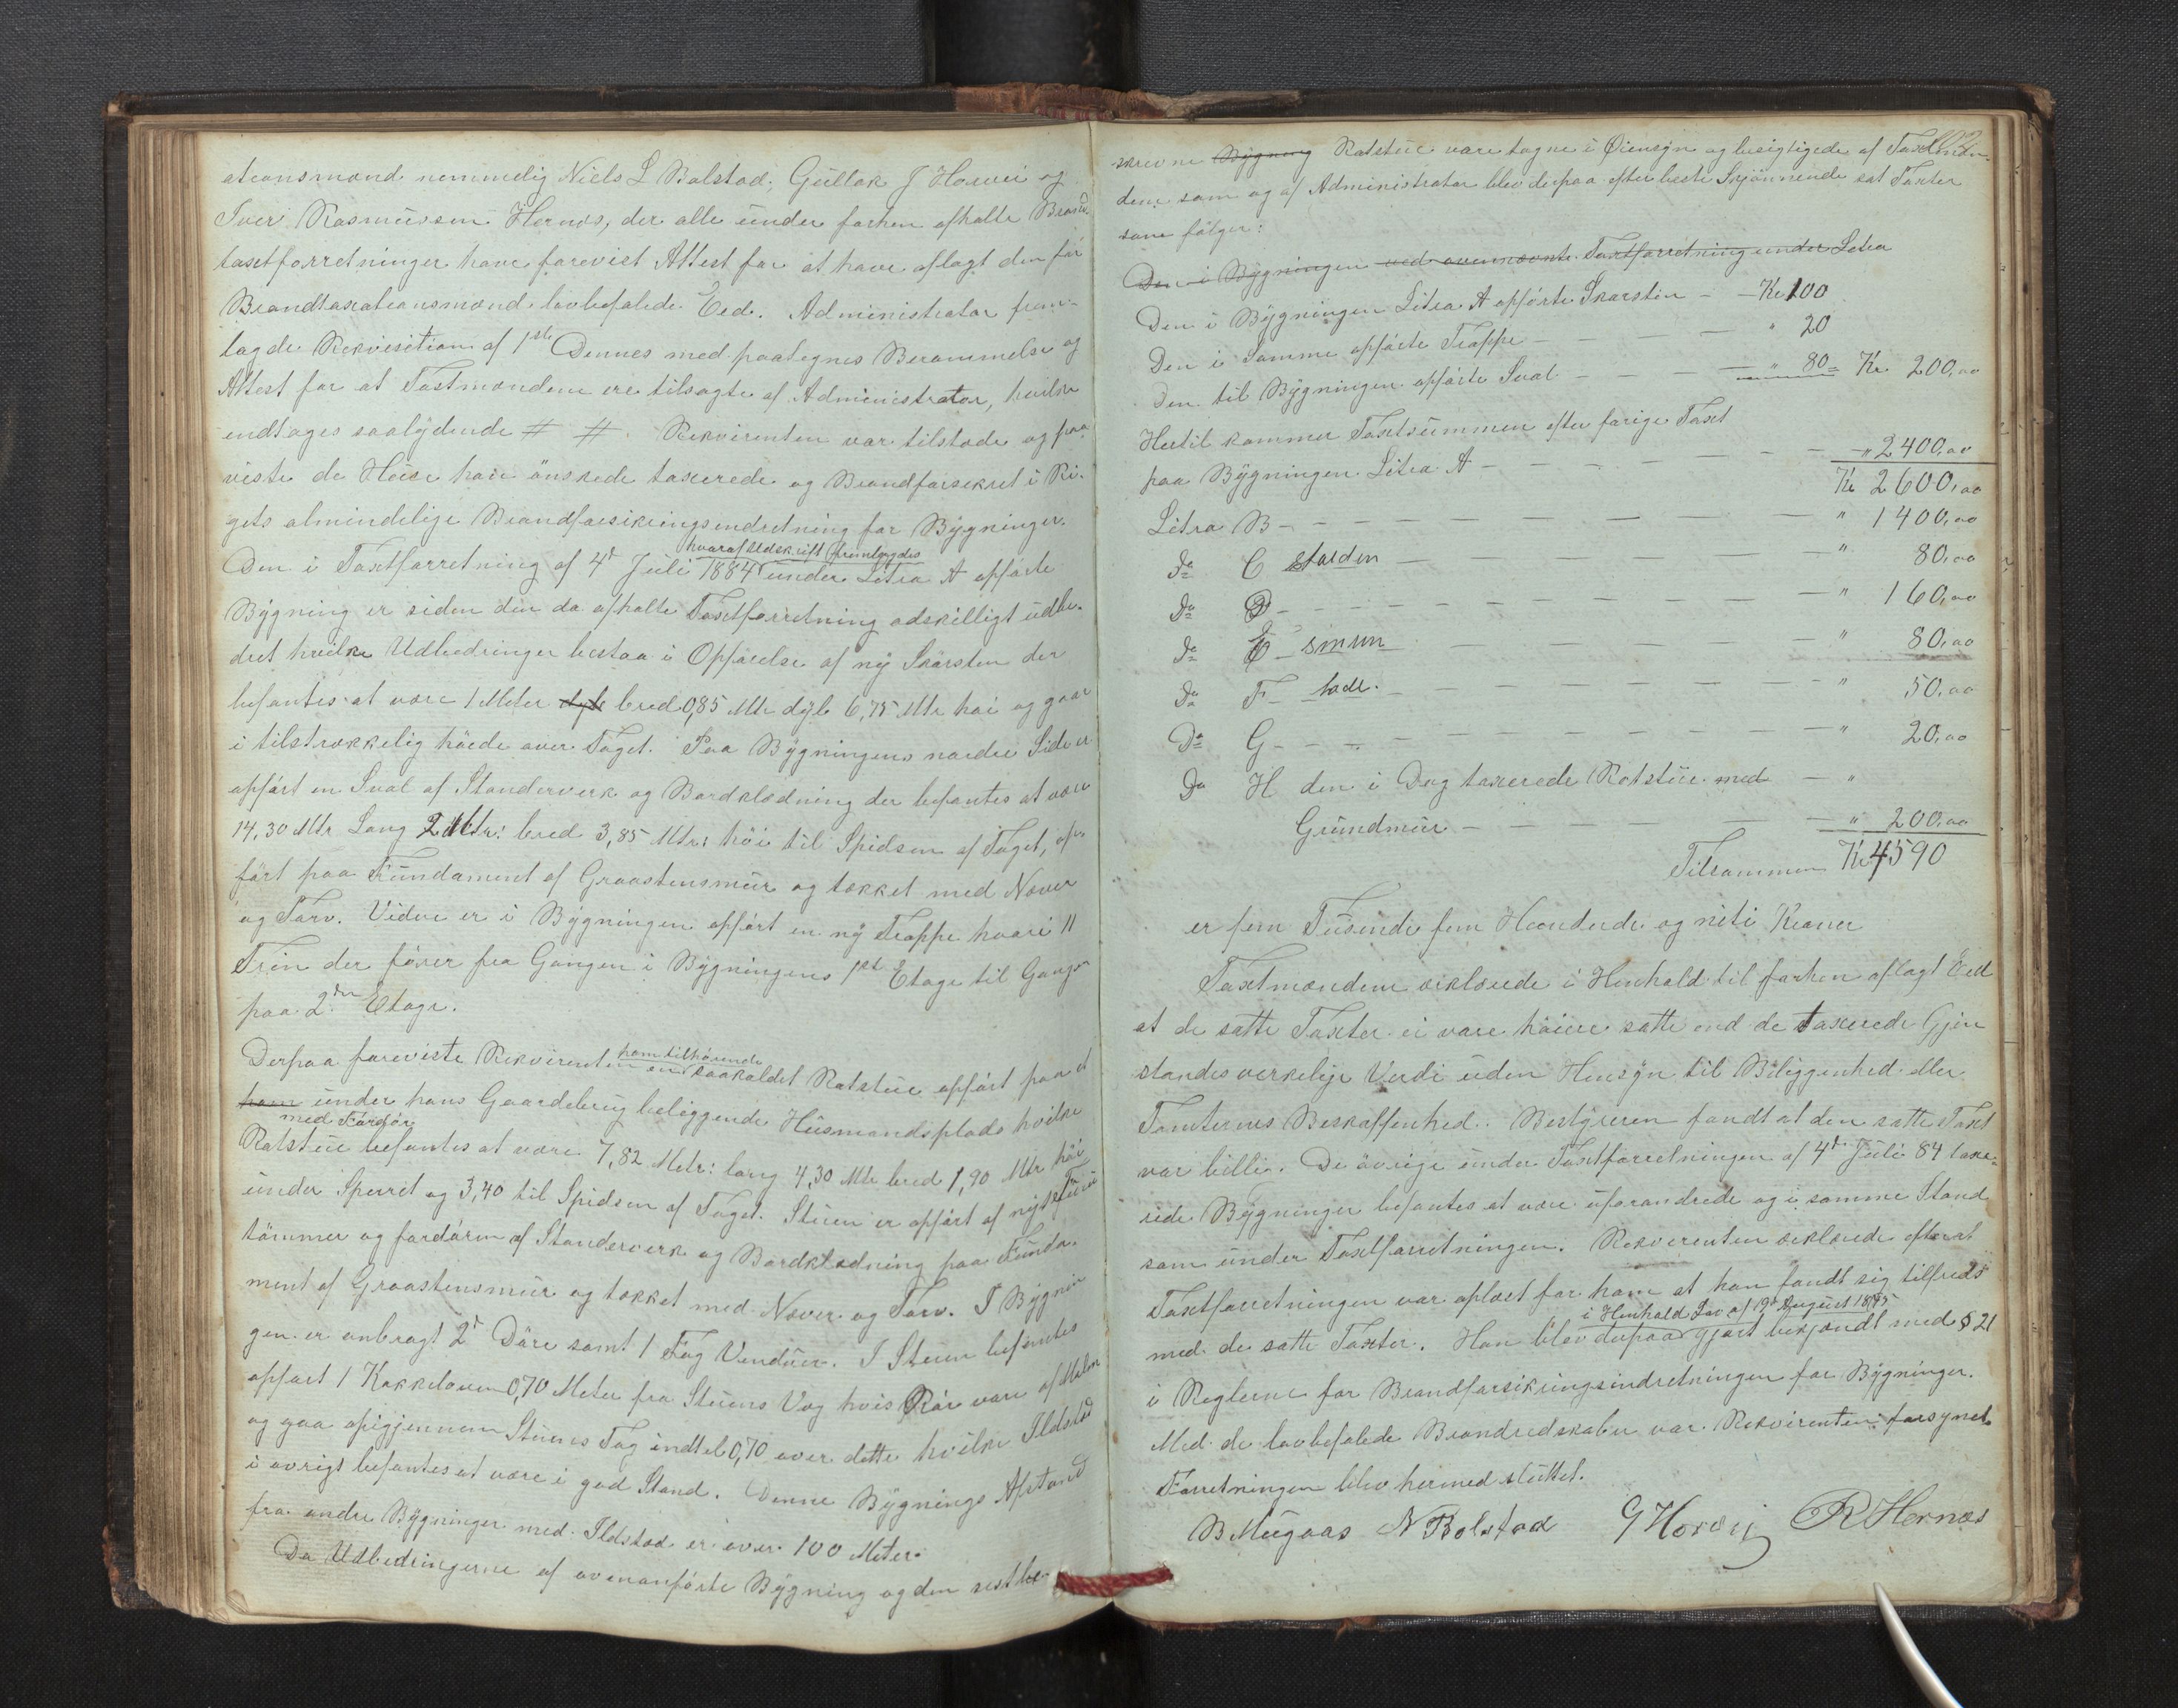 ationsmænd nemmelig Niels L Bolstad, Gullak J Horvei og
Iver Rasmussen Hernes, der alle under forhen afholte Brand-
taxtforretninger have forevist Attest for at have aflagt den for
Brandtaxationsmænd lovbefalede Eed. Administrator frem-
lagde Rekvisition af 1ste Dennes med paategnes Berammelse og
Attest for at Taxtmændene ere tilsagte af Administrator, hvilke
indtages saalydende # #. Rekvirenten var tilstæde og paa-
viste de Huse han ønskede taxerede og Brandforsikret i Ri-
gets almindelige Brandforsikringsindretning for Bygninger.
hvoraf Udskrift fremlagdes
Den i Taxtforretning af 4de Juli 1884 under Litra A opførte
Bygning er siden den da afholte Taxtforretning adskilligt udbe-
dret hvilke Udbedringer bestaa i Opførelse af ny Skorsten der
befantes at være 1 Meter dyb bred 0,85 Mtr dyb 6,75 Mtr høi og gaar
i tilstrækkelig høide over Taget. Paa Bygningens nordre Side er
opført en Sval af Standerverk og Bordklædning der befantes at være
14,30 Mtr Lang 2 Mtr: bred 3,85 Mtr: høi til Spidsen af Taget, op-
ført paa Fundament af Graastensmur og tækket med Næver
og Tørv. Videre er i Bygningen opført en ny Trappe hvori 11
Trin der fører fra Gangen i Bygningens 1ste Etage til Gangen
paa 2den Etage.
ham tilhørende
Derpaa foreviste Rekvirenten en saakaldet Røstue opført paa et
ham under hans Gaardsbrug beliggende Husmandsplads hvilke
med Fordør
Røstue befantes at være 7,82 Mtr: lang 4,30 Mtr bred 1,90 Mtr høi
under Sperret og 3,40 til Spidsen af Taget. Stuen er opført af nyt Furu
tømmer og fordøren af Standerverk og Bordklædning paa Funda-
ment af Graastensmur og tækket med Næver og Tørv. I Bygnin
gen er anbragt 2de Døre samt 1 Fag Vinduer. I Stuen befantes
opført 1 Kakkelovn 0,70 Meter fra Stuens Væg hvis Rør vare af Malm
og gaa opigjennem Stuens Tag indtil 0,70 over dette hvilke Ildsted
i øvrigt befantes at være i god Stand. Denne Bygnings Afstand
fra andre Bygninger med Ildsted er over 100 Meter.
Da Udbedringerne af ovenanførte Bygning og den sidst be-
skrevne Bygning Røstue vare tagne i Øiensyn og besigtigede af Taxtmæn-
dene som og af Administrator blev derpaa efter beste Skjønnende sat Taxter
som følger:
Den i Bygningen ved ovennævnte Taxtforretning under Litra
Den i Bygningen Litra A opførte Skorsten - - Kr 100
Den i Samme opførte Trappe - - - - " 20
Den til Bygningen opførte Sval - - - - " 80 = Kr. 200,00
Hertil kommer Taxtsummen efter forige Taxt
paa Bygningen Litra A - - - - - - " 2400,00
Kr 2600,00
Litra B - - - - - - - " 1400,00
Do C Stalden - - - - " 80,00
Do D - - - - - - " 160,00
Do E Smien - - - - " 80,00
Do F lade. - - - - " 50,00
Do G - - - - - - " 20,00
Do H den i Dag taxerede Røstue med - "
Grundmur - - - - - " 200,00
Tilsammen Kr 4590
er fem Tusinde fem Hundrede og niti Kroner
Taxtmændene erklærede i Henhold til forhen aflagt Eed
at de satte Taxter ei vare høiere satte end de taxerede Gjen
standes verkelige Verdi uden Hensyn til Beliggenhed eller
Tomternes Beskaffenhed. Bestyreren fandt at den satte Taxt
var billig. De øvrige under Taxtforretningen af 4de Juli 84 taxe-
rede Bygninger befantes at være uforandrede og i samme Stand
som under Taxtforretningen. Rekvirenten erklærede efterat
Taxtforretningen var oplæst for ham at han fandt sig tilfreds
i Henhold Lov af 19de August 1845
med de satte Taxter. Han blev derpaa gjort bekjendt med § 21
i Reglerne for Brandforsikringsindretningen for Bygninger.
Med de lovbefalede Brandredskaber var Rekvirenten forsynet
Forretningen blev hermed sluttet.
B Mugaas N Bolstad G Horvei R Hernes